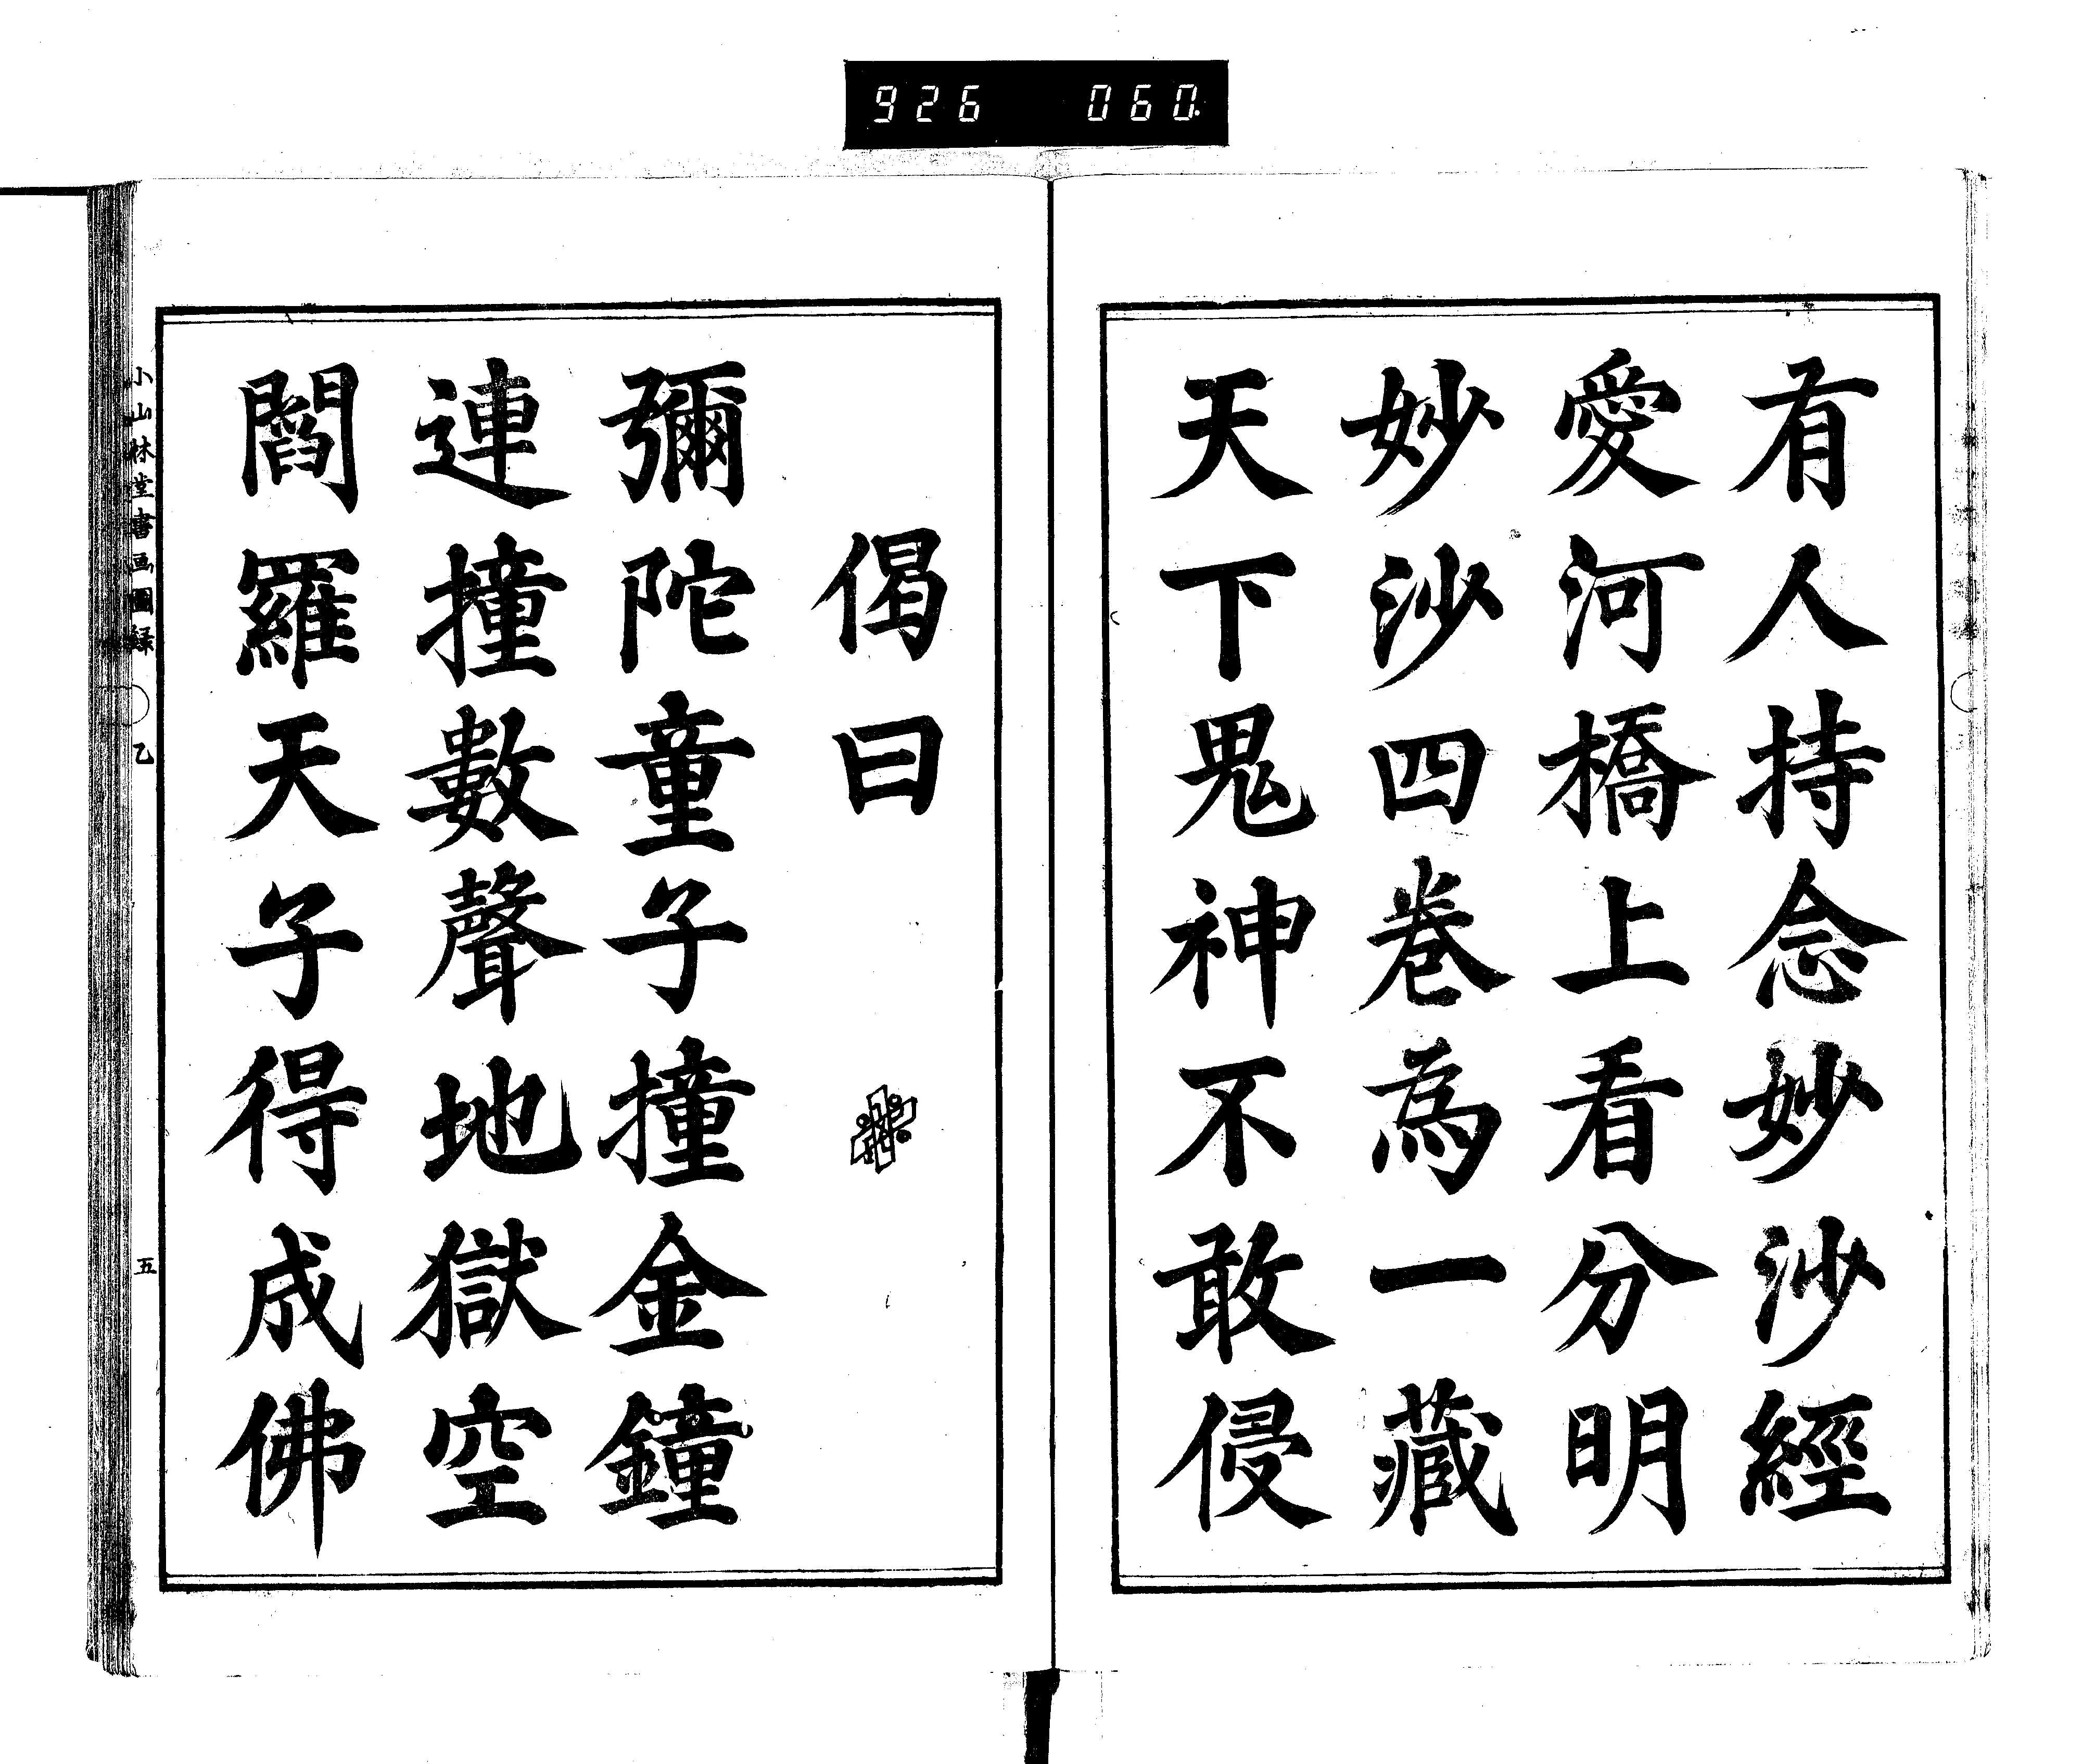 926 060
有人持念妙沙經
愛河橋上看分明
妙沙四卷為一藏
天下鬼神不敢侵
偈曰
彌陀童子撞金鐘
連撞數聲地獄空
閻羅天子得成佛
小山林堂書画圖録 乙 五